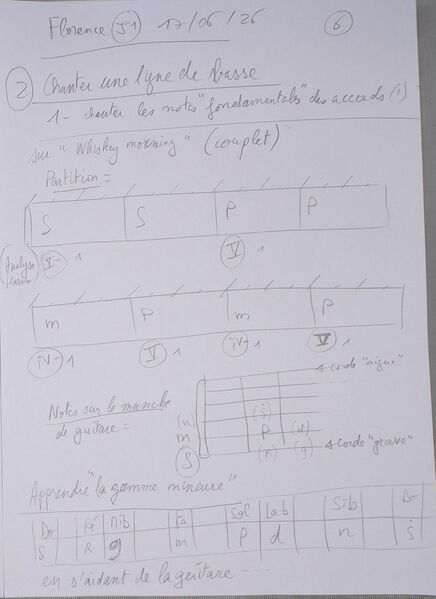 Florence S1 17/06/26 6
2 Chanter une ligne de basse
1 - chanter les notes "fondamentales" des accords (1)
sur "Whiskey morning" (couplet)
Partition =
S S P P
I- 1 V 1
m P m P
IV- 1 V 1 IV- 1 V 1
corde "aigue"
Notes sur le manche
de guitare =
(n) (ṡ)
m P (d)
S (r) (g) corde "grave"
Apprendre "la gamme mineure"
Do Ré Mib Fa Sol Lab Sib Do
S R g m P d n ṡ
en s'aidant de la guitare ...